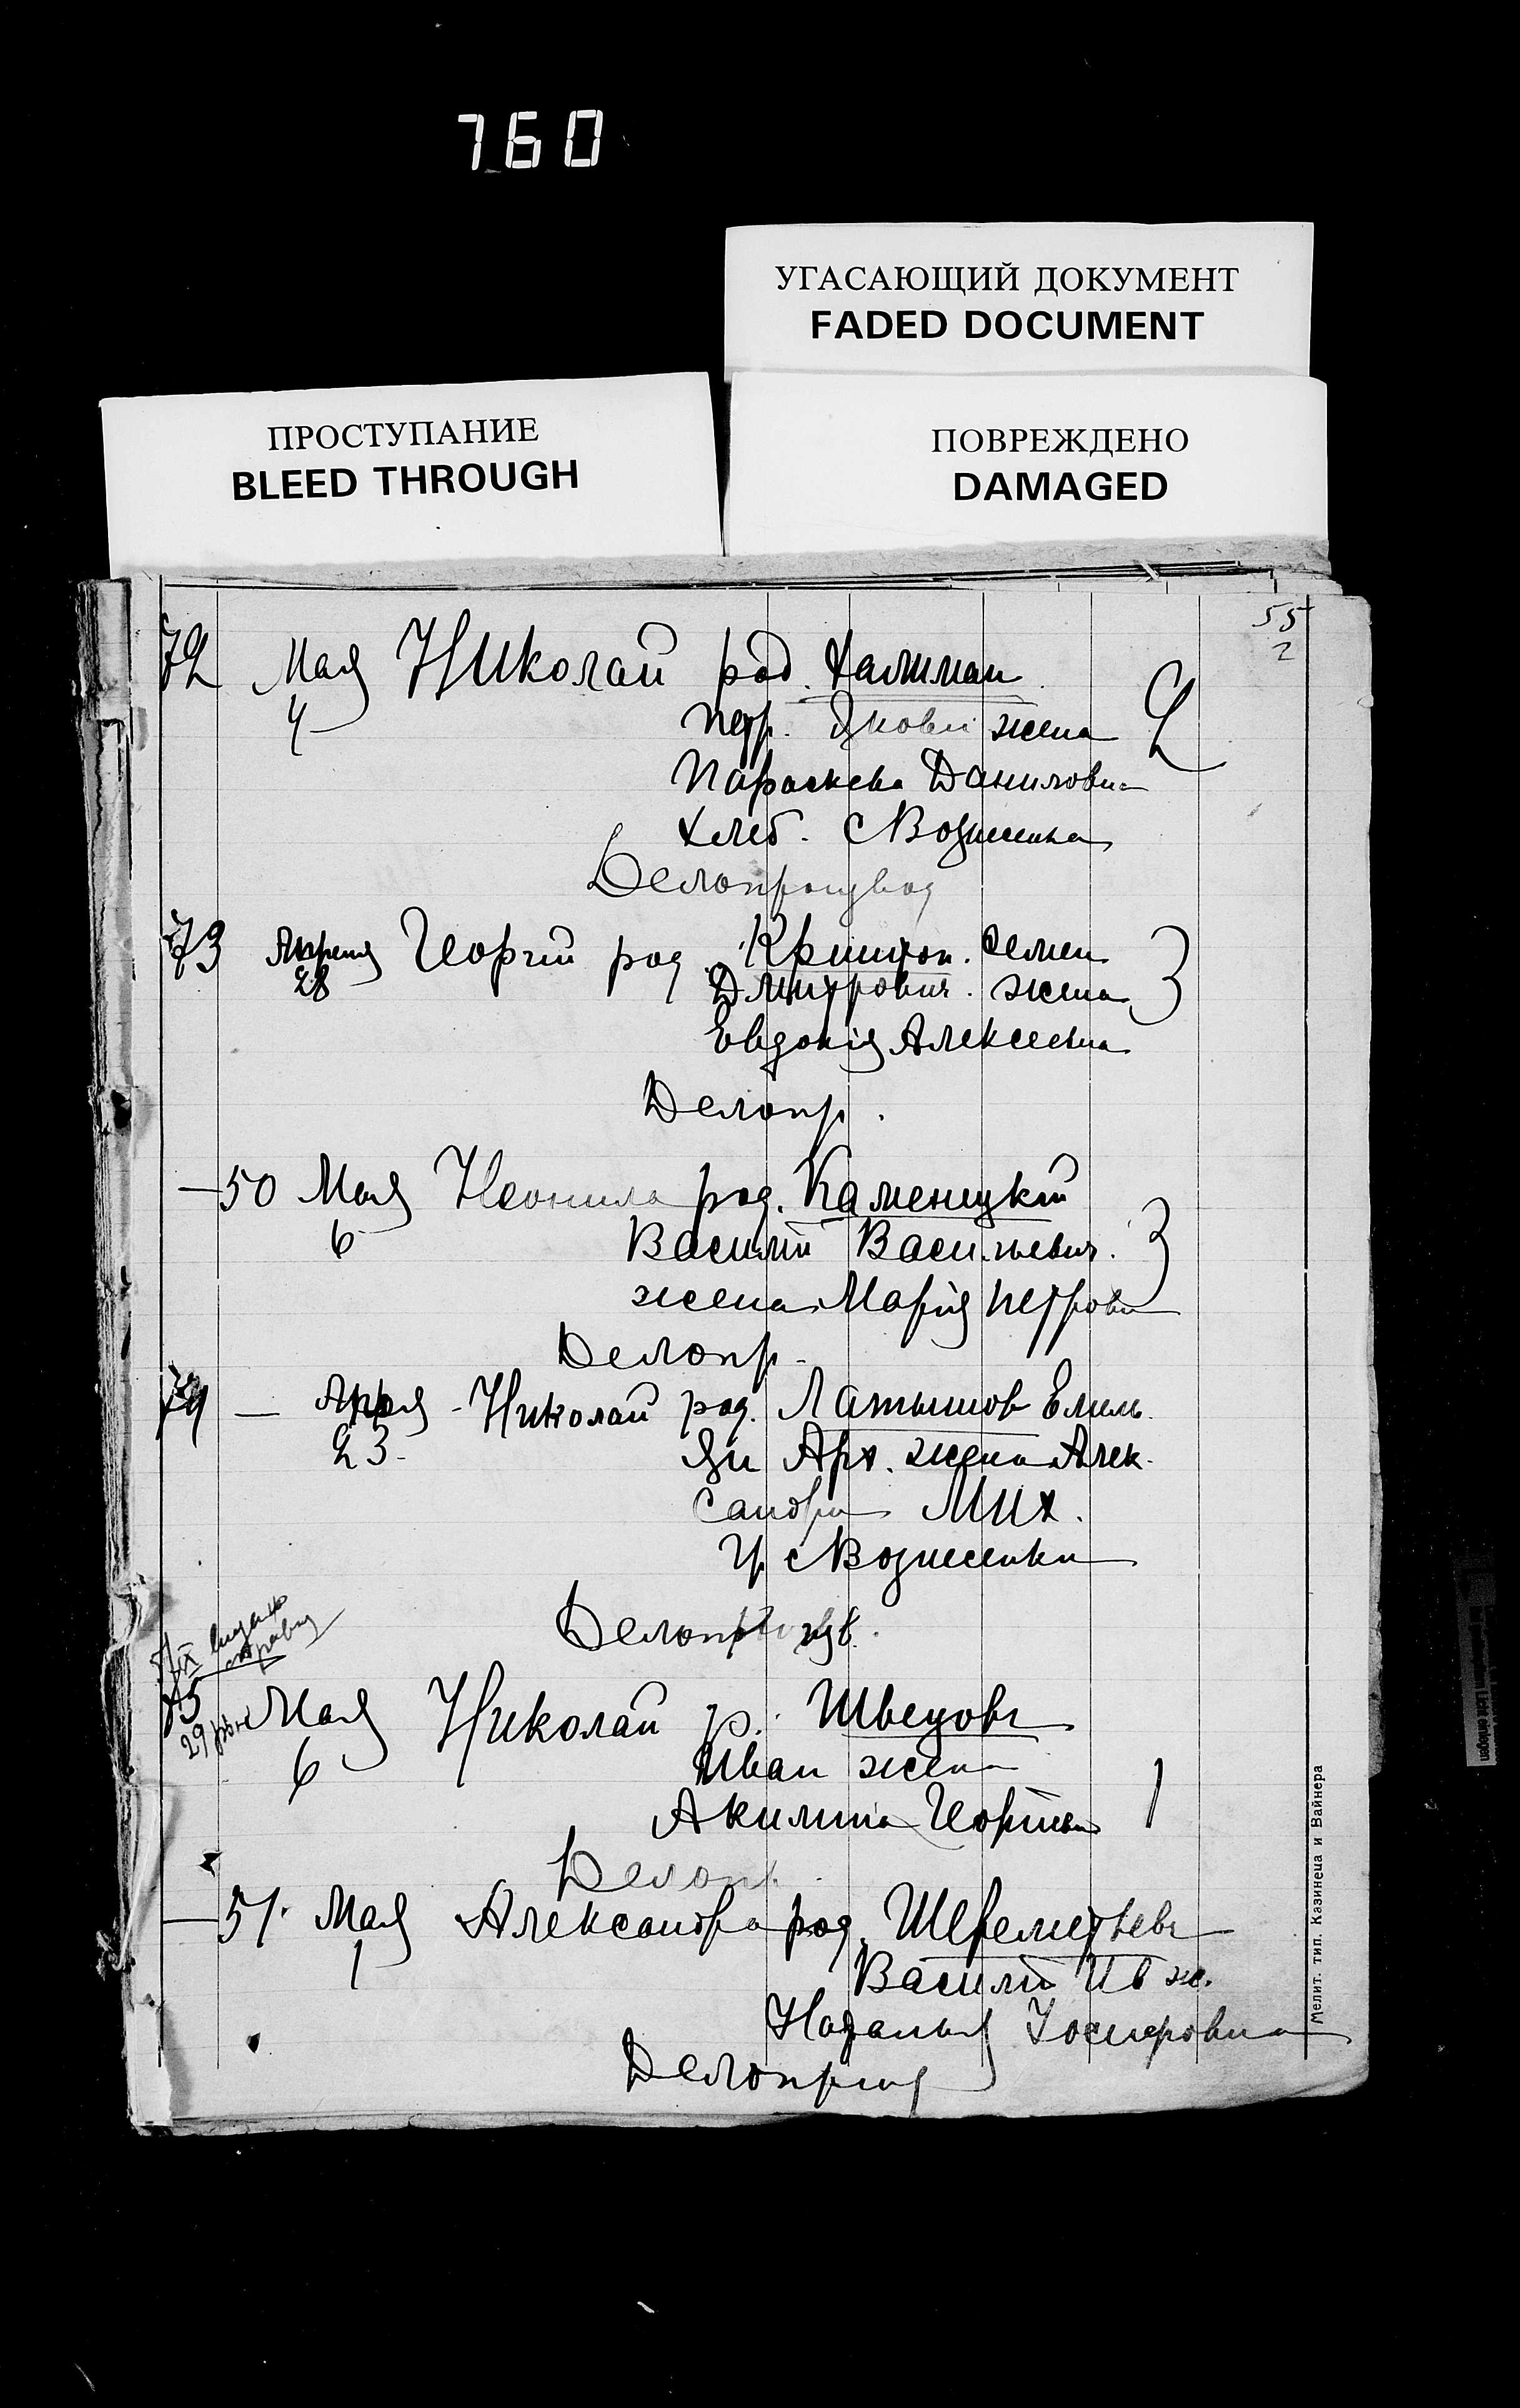 760
УГАСАЮЩИЙ ДОКУМЕНТ
FADED DOCUMENT
ПРОСТУПАНИЕ
BLEED THROUGH
ПОВРЕЖДЕНО
DAMAGED
55
2
72 Мая Николай род. Халиман
4 петр. Яковл жена 2
Параскева Даниловна
хлеб. с Вознесенка
Делопроизвод
73 Апреля Георгий род. Криштоп. Семен
28 Дмитрович. жена 3
Евдокия Алексеевна
Делопр.
— 50 Мая Неонила род. Каменицкий
6 Василий Васильевич. 3
жена Мария Петровн
Делопр.
74 — Апреля Николай род. Латышов Емель
23 ян Арх. жена Алек
сандра Мих.
гр с Вознесенки
Делопроизв.
75
29
Мая Николай р. Швецовъ
6 Иван жена
Акилина Георгиев 1
Делопр.
— 51. Мая Александра род. Шереметьевъ
1 Василий Ив ж.
Наталья Иосифовна
Делопроизв
Мелит. тип. Казинеца и Вайнера